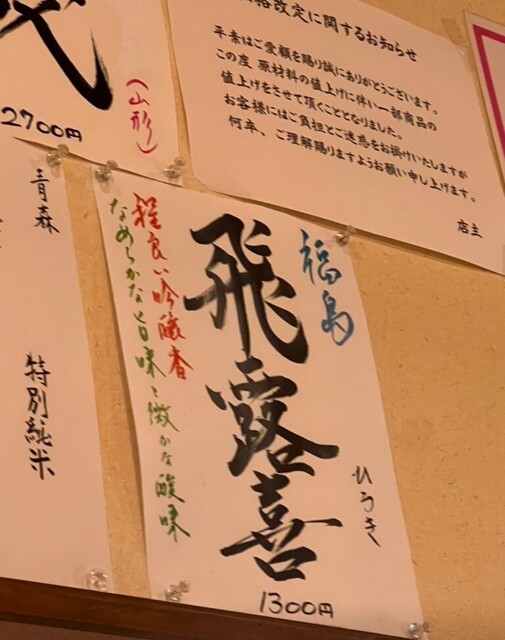 格改定に関するお知らせ
平素はご愛顧を賜り誠にありがとうございます。
この度 原材料の値上げに伴い一部商品の
値上げをさせて頂くこととなりました。
お客様にはご負担とご迷惑をお掛けいたしますが
何卒、ご理解賜りますようお願い申し上げます。
店主
(山形)
2700円
青森
特別純米
福島
飛露喜
ひろき
程良い吟醸香
なめらかな旨味と微かな酸味
1300円